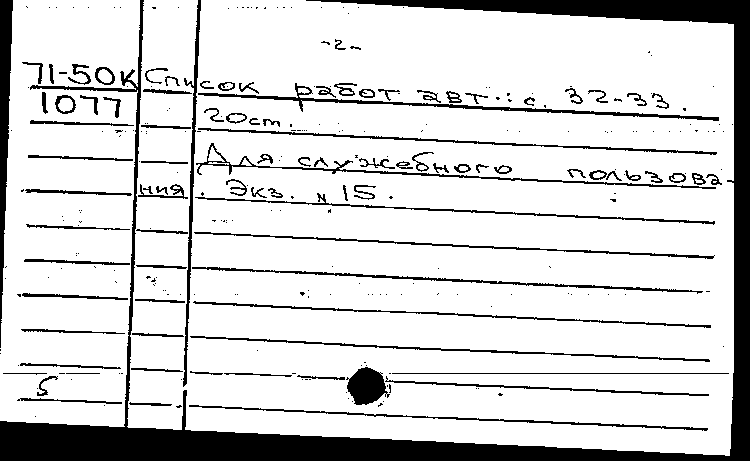 -2-
71-50К Список работ авт.: с. 32-33.
1077 20 ст.
Для служебного пользова-
ния. Экз. N 15.
5